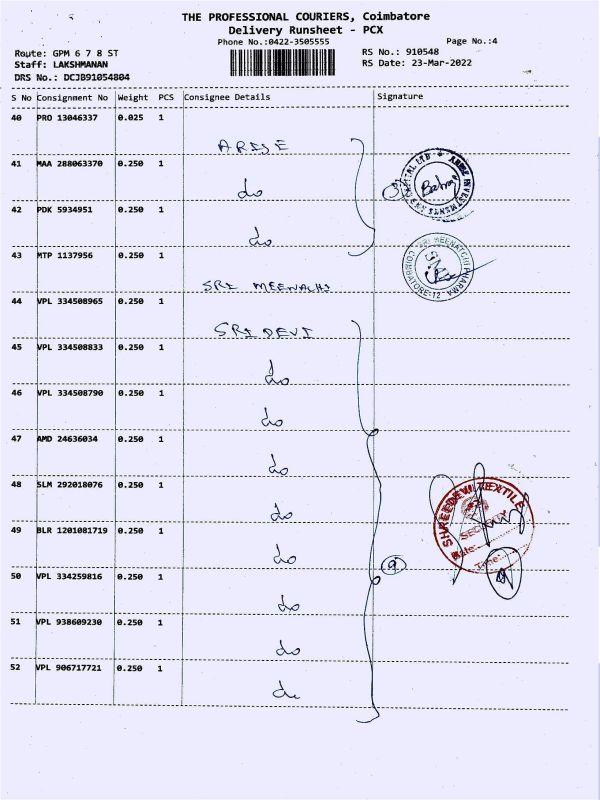 THE PROFESSIONAL COURIERS, Coimbatore
Delivery Runsheet - PCX
Phone No.:0422-3505555
Page No.:4
Route: GPM 6 7 8 ST
RS No.: 910548
Staff: LAKSHMANAN
RS Date: 23-Mar-2022
DRS No.: DCJB91054804
S No Consignment No Weight PCS Consignee Details Signature
40 PRO 13046337 0.025 1
ARISE
41 MAA 288063370 0.250 1
do
42 PDK 5934951 0.250 1
do
43 MTP 1137956 0.250 1
SRI MEENACHI
44 VPL 334508965 0.250 1
SRI DEVI
45 VPL 334508833 0.250 1
do
46 VPL 334508790 0.250 1
do
47 AMD 24636034 0.250 1
do
48 SLM 292018076 0.250 1
do
SHREEDEVI TEXTILE
SECURITY
Date:
Time:
49 BLR 1201081719 0.250 1
do
9
50 VPL 334259816 0.250 1
do
51 VPL 938609230 0.250 1
do
52 VPL 906717721 0.250 1
do